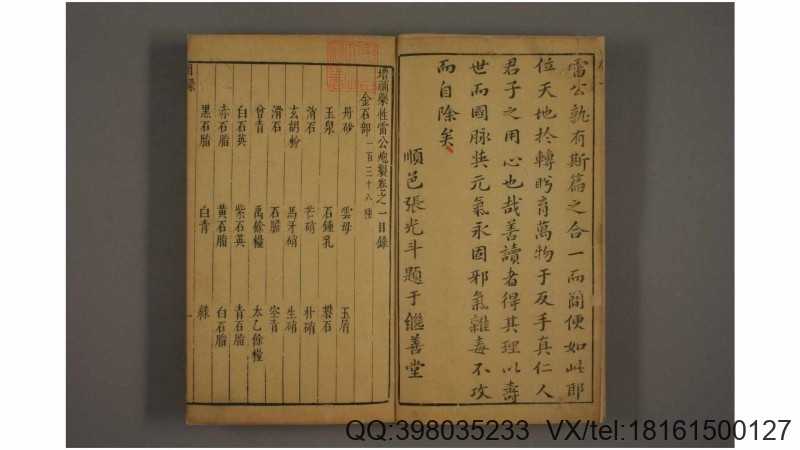 雷公孰有斯篇之合一而簡便如此耶
位天地於轉眄育萬物于反手真仁人
君子之用心也哉善讀者得其理以壽
世而國脉與元氣永固邪氣雜毒不攻
而自除矣
順邑張光斗題于繼善堂
增補藥性雷公炮製卷之一目錄
金石部一百三十八種
丹砂 雲母 玉屑
玉泉 石鍾乳 礬石
消石 芒硝 朴硝
玄胡粉 馬牙硝 生硝
滑石 石膽 空青
曾青 禹餘糧 太乙餘糧
白石英 紫石英 青石脂
赤石脂 黃石脂 白石脂
黑石脂 白青
目錄
QQ:398035233 VX/tel:18161500127